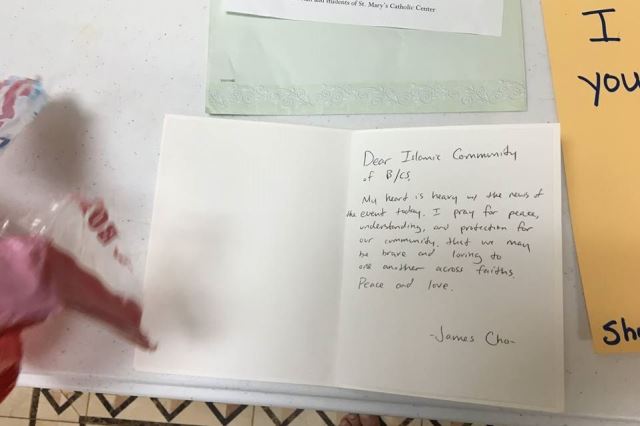 and students of St. Mary's Catholic Center
I
you
Dear Islamic Community
of B/CS,
My heart is heavy w/ the news of
the event today. I pray for peace,
understanding, and protection for
our community. that we may
be brave and loving to
one another across faiths.
Peace and love.
-James Cho-
Sh